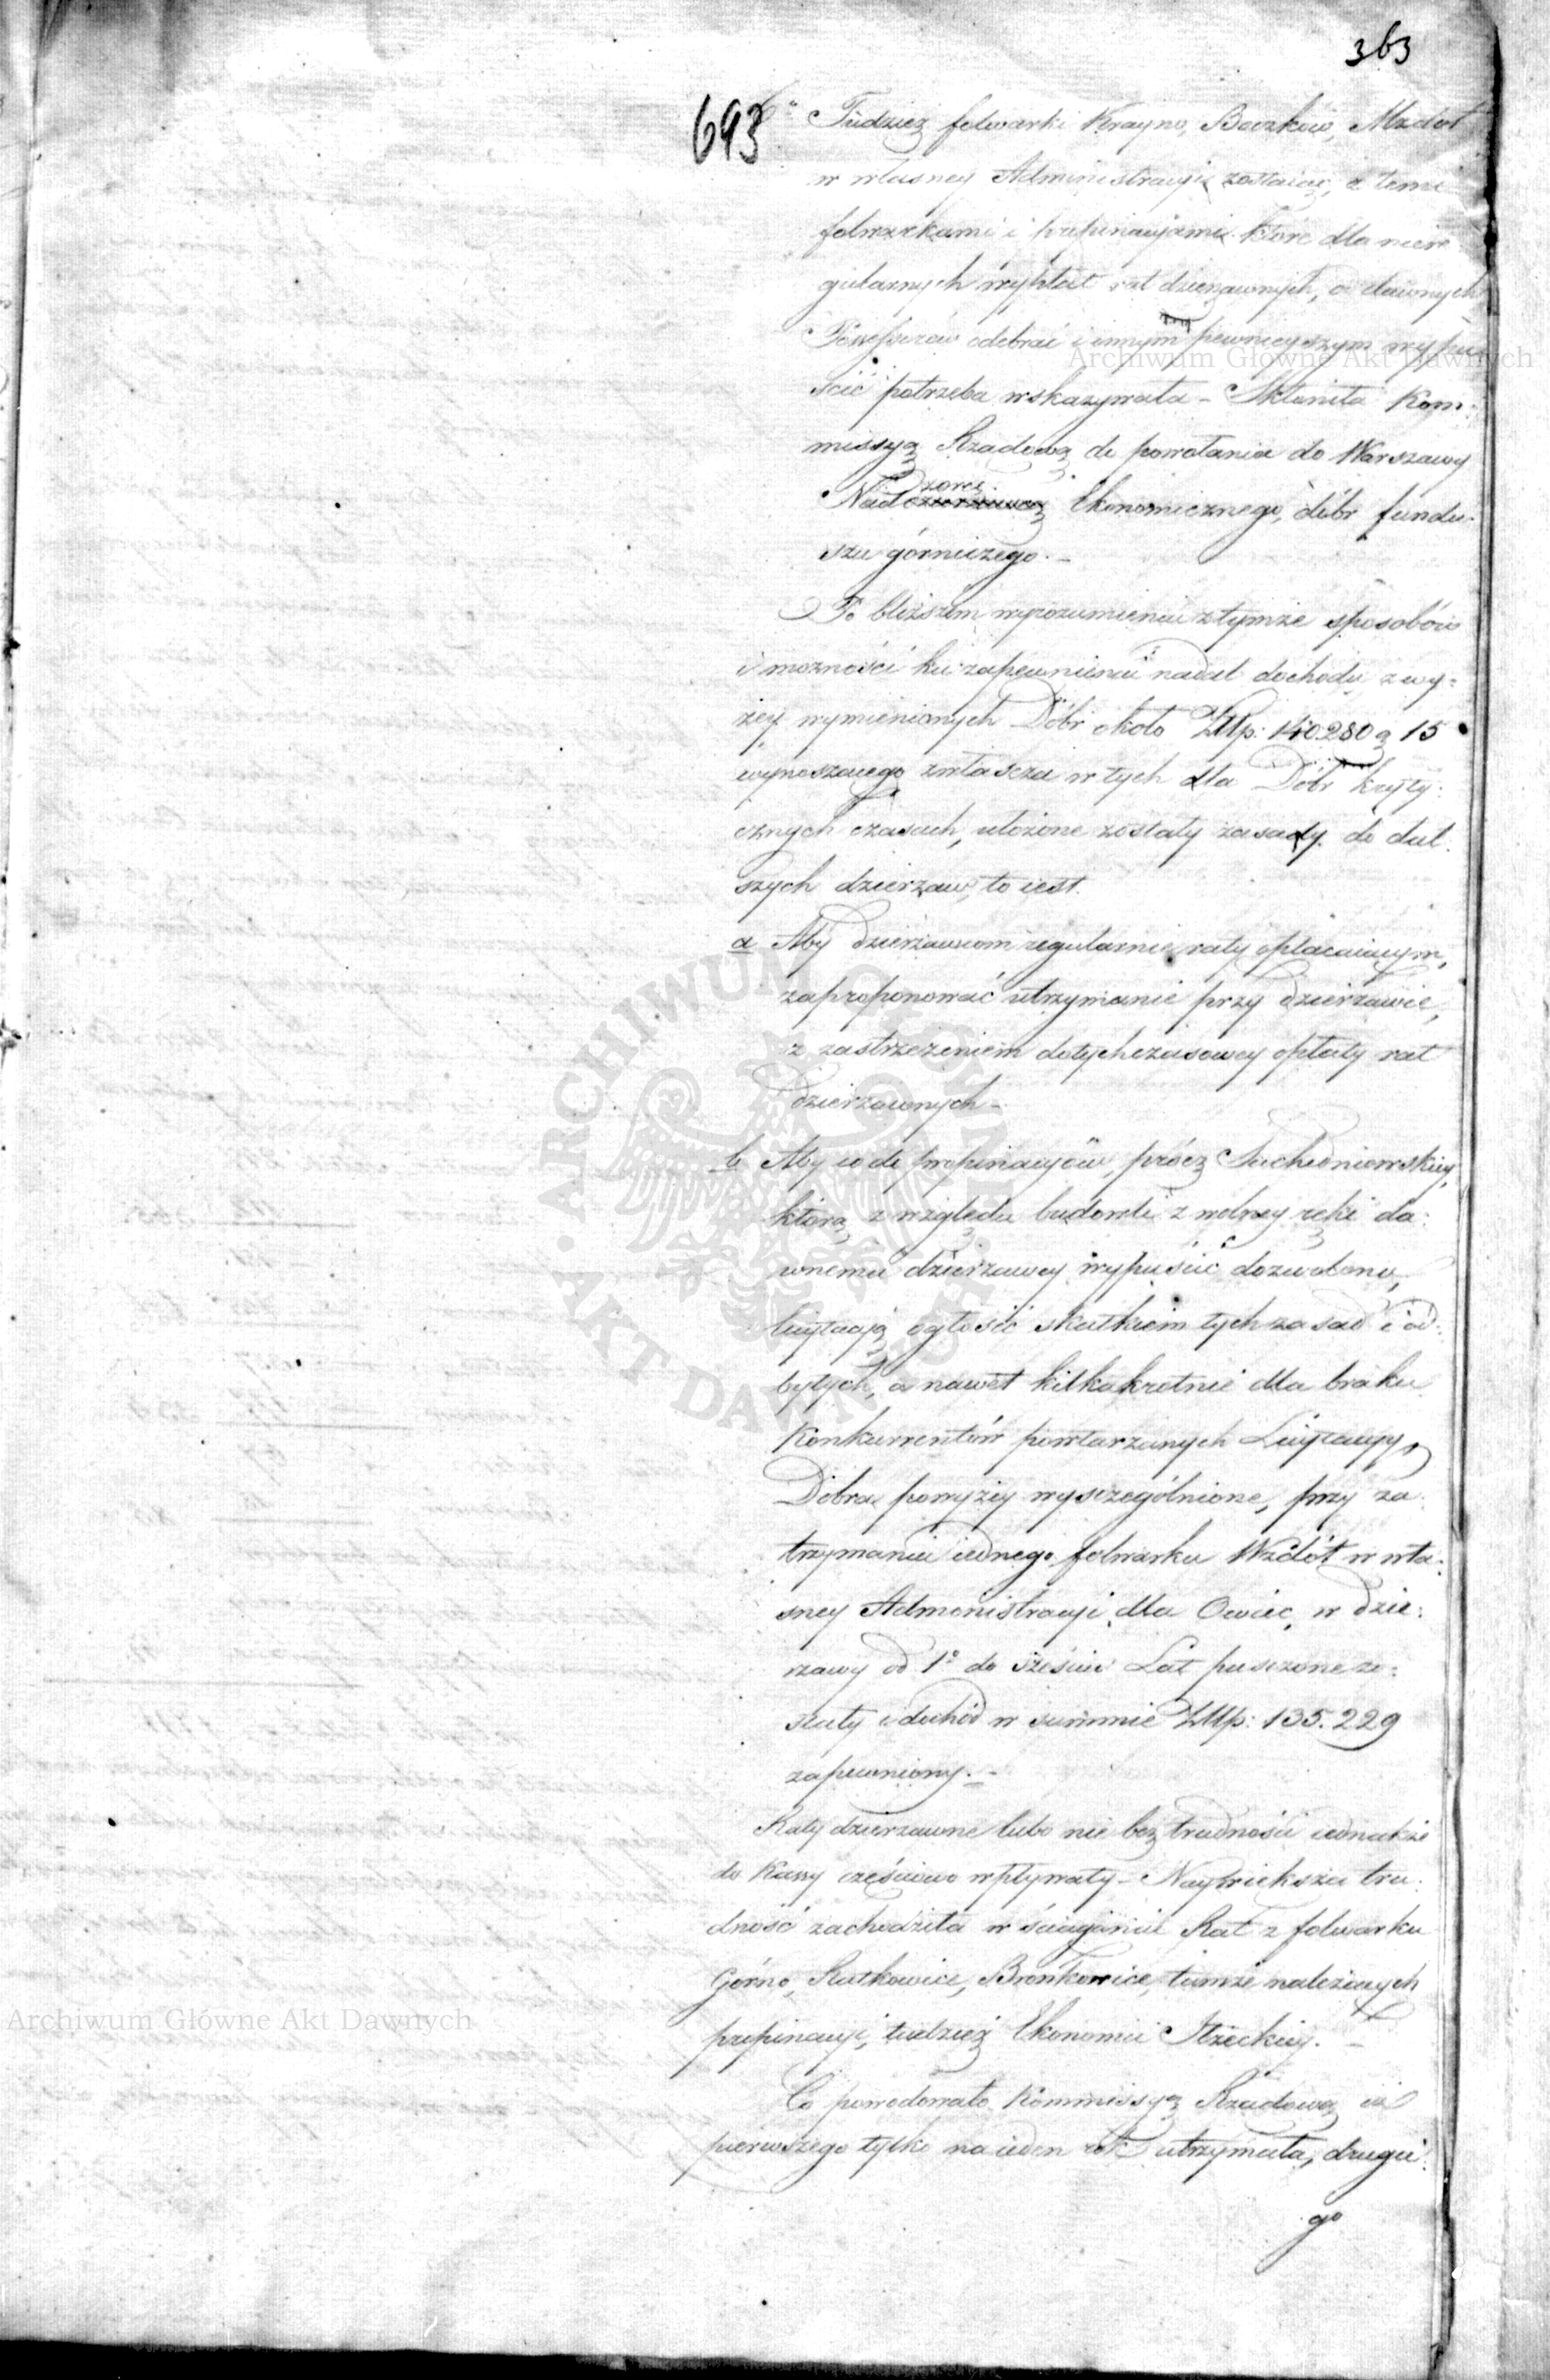 363
693
Tudzież folwarki Krayno, Baczków, Wzdoł
w własney Administracyi zostaiące, a temi
folwarkami i propinacyami które dla niere
gularnych wypłat rat dzierżawnych, od dawnych
Possessorów odebrać i innym pewnieyszym wypu
ścić potrzeba wskazywała – Skłoniła Kom:
missyą Rządową do powołania do Warszawy
Nadzorcę Ekonomicznego, dóbr fundu:
szu górniczego. –
Po bliższem wyrozumieniu z tymże sposobów
i możności ku zapewnieniu nadal dochodu z wy:
żey wymienionych Dóbr około Złlp: 140.280 g 15
wynoszącego zwłaszcza w tych dla Dóbr kryty:
cznych czasach, ułożone zostały zasady do dal
szych dzierżaw, to iest.
a Aby dzierżawcom regularnie raty opłacaiącym,
zaproponować utrzymanie przy dzierżawie,
z zastrzeżeniem dotychczasowey opłaty rat
dzierżawnych –
b Aby co do propinacyów, prócz Suchedniowskiey,
którą z względu budowli z wolney ręki da:
wnemu dzierżawcy wypuścić dozwolono,
licytacyą ogłosić skutkiem tych zasad i od:
bytych, a nawet kilkakrotnie dla braku
Konkurrentów powtarzanych Licytacyy,
Dobra powyżey wyszczególnione, przy za
trzymaniu iednego folwarku Wzdół w wła:
sney Administracyi dla Owiec, w dzie:
rzawy od 1o do sześciu Lat puszczone zo:
stały i dochód w summie Złlp: 135.229
zapewniony. –
Raty dzierżawne lubo nie bez trudności iednakże
do Kassy częściowo wpływały – Naywiększa tru:
dność zachodziła w ściąganiu Rat z folwarku
Górno, Rutkowice, Bronkowice, tamże należących
propinacyi, tudzież Ekonomii Iłżeckiey. –
Co powodowało Kommissyą Rządową iż
pierwszego tylko na ieden rok utrzymała, drugie:
go
Archiwum Główne Akt Dawnych
Archiwum Główne Akt Dawnych
ARCHIWUM GŁÓWNE AKT DAWNYCH